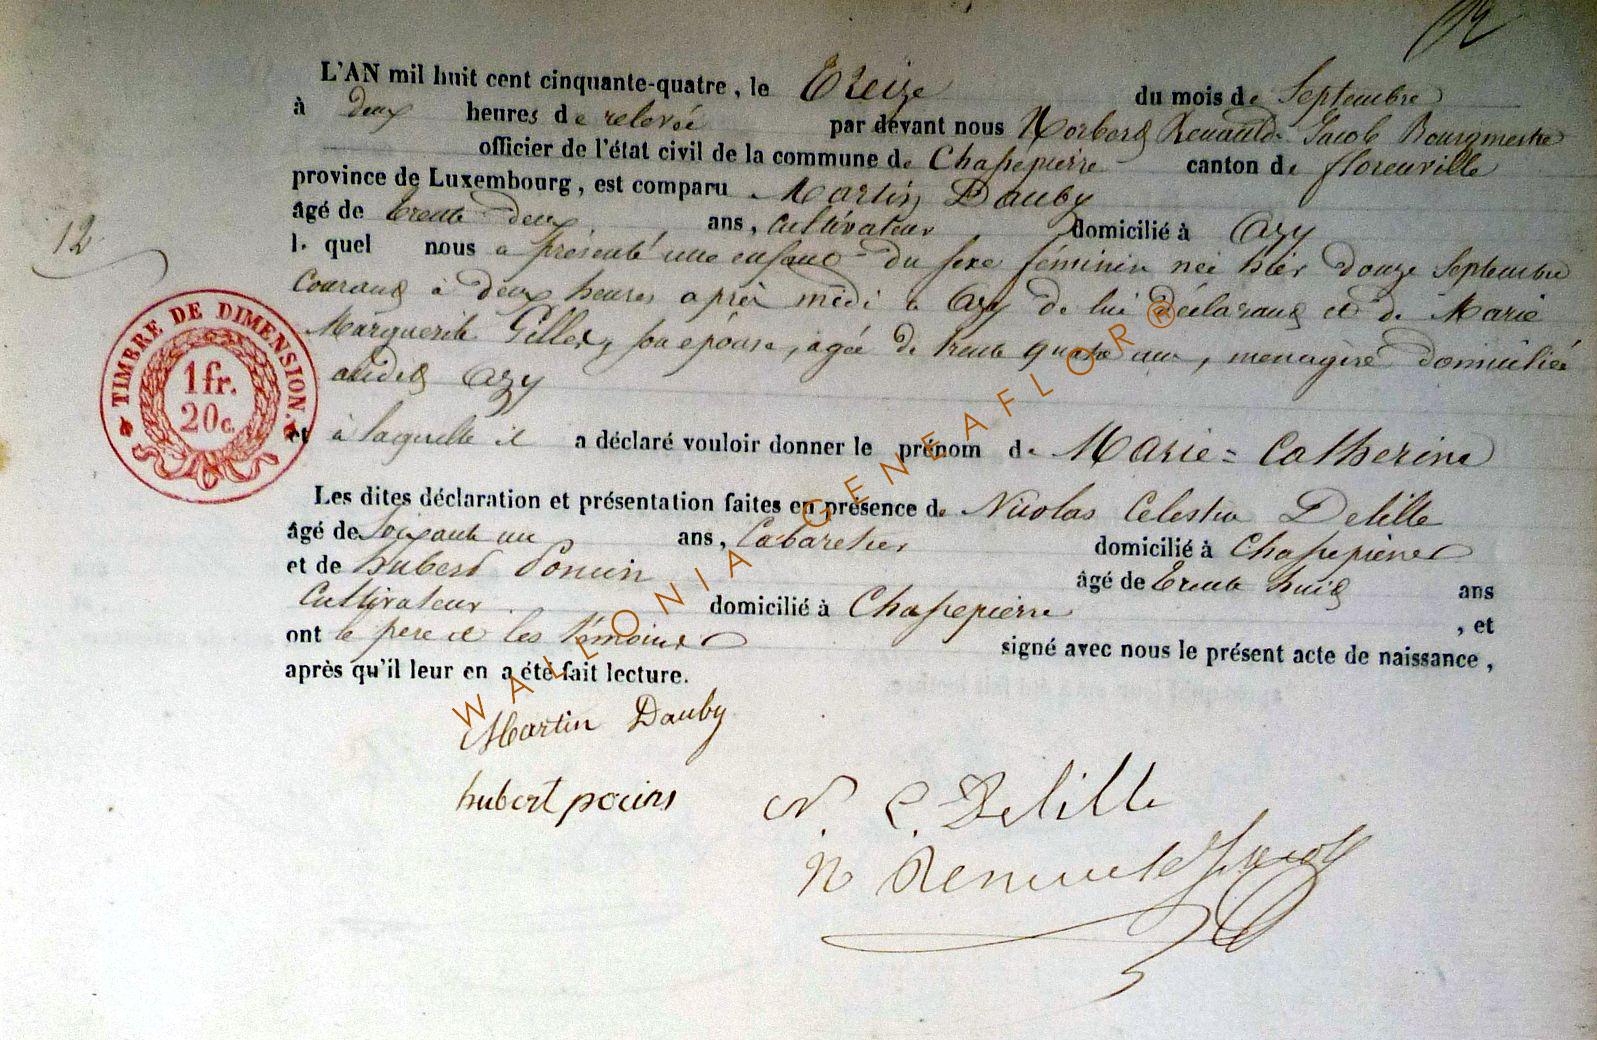 12
L'AN mil huit cent cinquante-quatre, le Treize du mois de Septembre
à deux heures de relevée par devant nous Norbert Renauld Jacob Bourgmestre
officier de l'état civil de la commune de Chassepierre canton de florenville
province de Luxembourg, est comparu Martin Dauby
âgé de trente deux ans, cultivateur domicilié à Azy
12
l. quel nous a présenté une enfant du sexe féminin née hier douze Septembre
courant à deux heures après midi à Azy de lui déclarant et de Marie
Marguerite Gillet, son épouse, agée de trente quatre ans, menagère domiciliée
audit Azy
TIMBRE DE DIMENSION.
1fr.
20c.
et à laquelle il a déclaré vouloir donner le prénom de Marie=Catherine
Les dites déclaration et présentation faites en présence de Nicolas Celestin Delille
âgé de Soixante un ans, Cabaretier domicilié à Chassepierre
et de hubert Poncin âgé de Trente huit ans
Cultivateur domicilié à Chassepierre , et
ont le père et les témoins signé avec nous le présent acte de naissance,
après qu'il leur en a été fait lecture.
WALLONIA GENEAFLOR®
Martin Dauby
hubert poncin
N. C. Delille
N Renauld Jacob